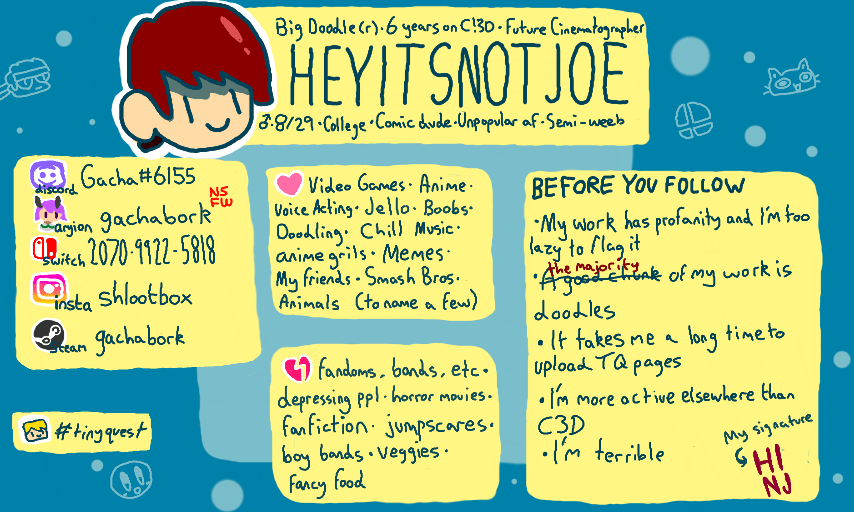 Big Doodle(r) · 6 years on C!3D · Future Cinematographer
HEYITSNOTJOE
♂ · 8/29 · College · Comic dude · Unpopular af · Semi-weeb
discord Gacha#6155
NSFW
aryion gachabork
switch 2070-9922-5818
insta shlootbox
steam gachabork
#tinyquest
Video Games · Anime ·
Voice Acting · Jello · Boobs ·
Doodling · Chill Music ·
anime grils · Memes ·
My friends · Smash Bros ·
Animals (to name a few)
fandoms, bands, etc ·
depressing ppl · horror movies ·
fanfiction · jumpscares ·
boy bands · veggies ·
fancy food
BEFORE YOU FOLLOW
· My work has profanity and I'm too
lazy to flag it
the majority
· A good chunk of my work is
doodles
· It takes me a long time to
upload TQ pages
· I'm more active elsewhere than
C3D
· I'm terrible
My signature
HI
NJ